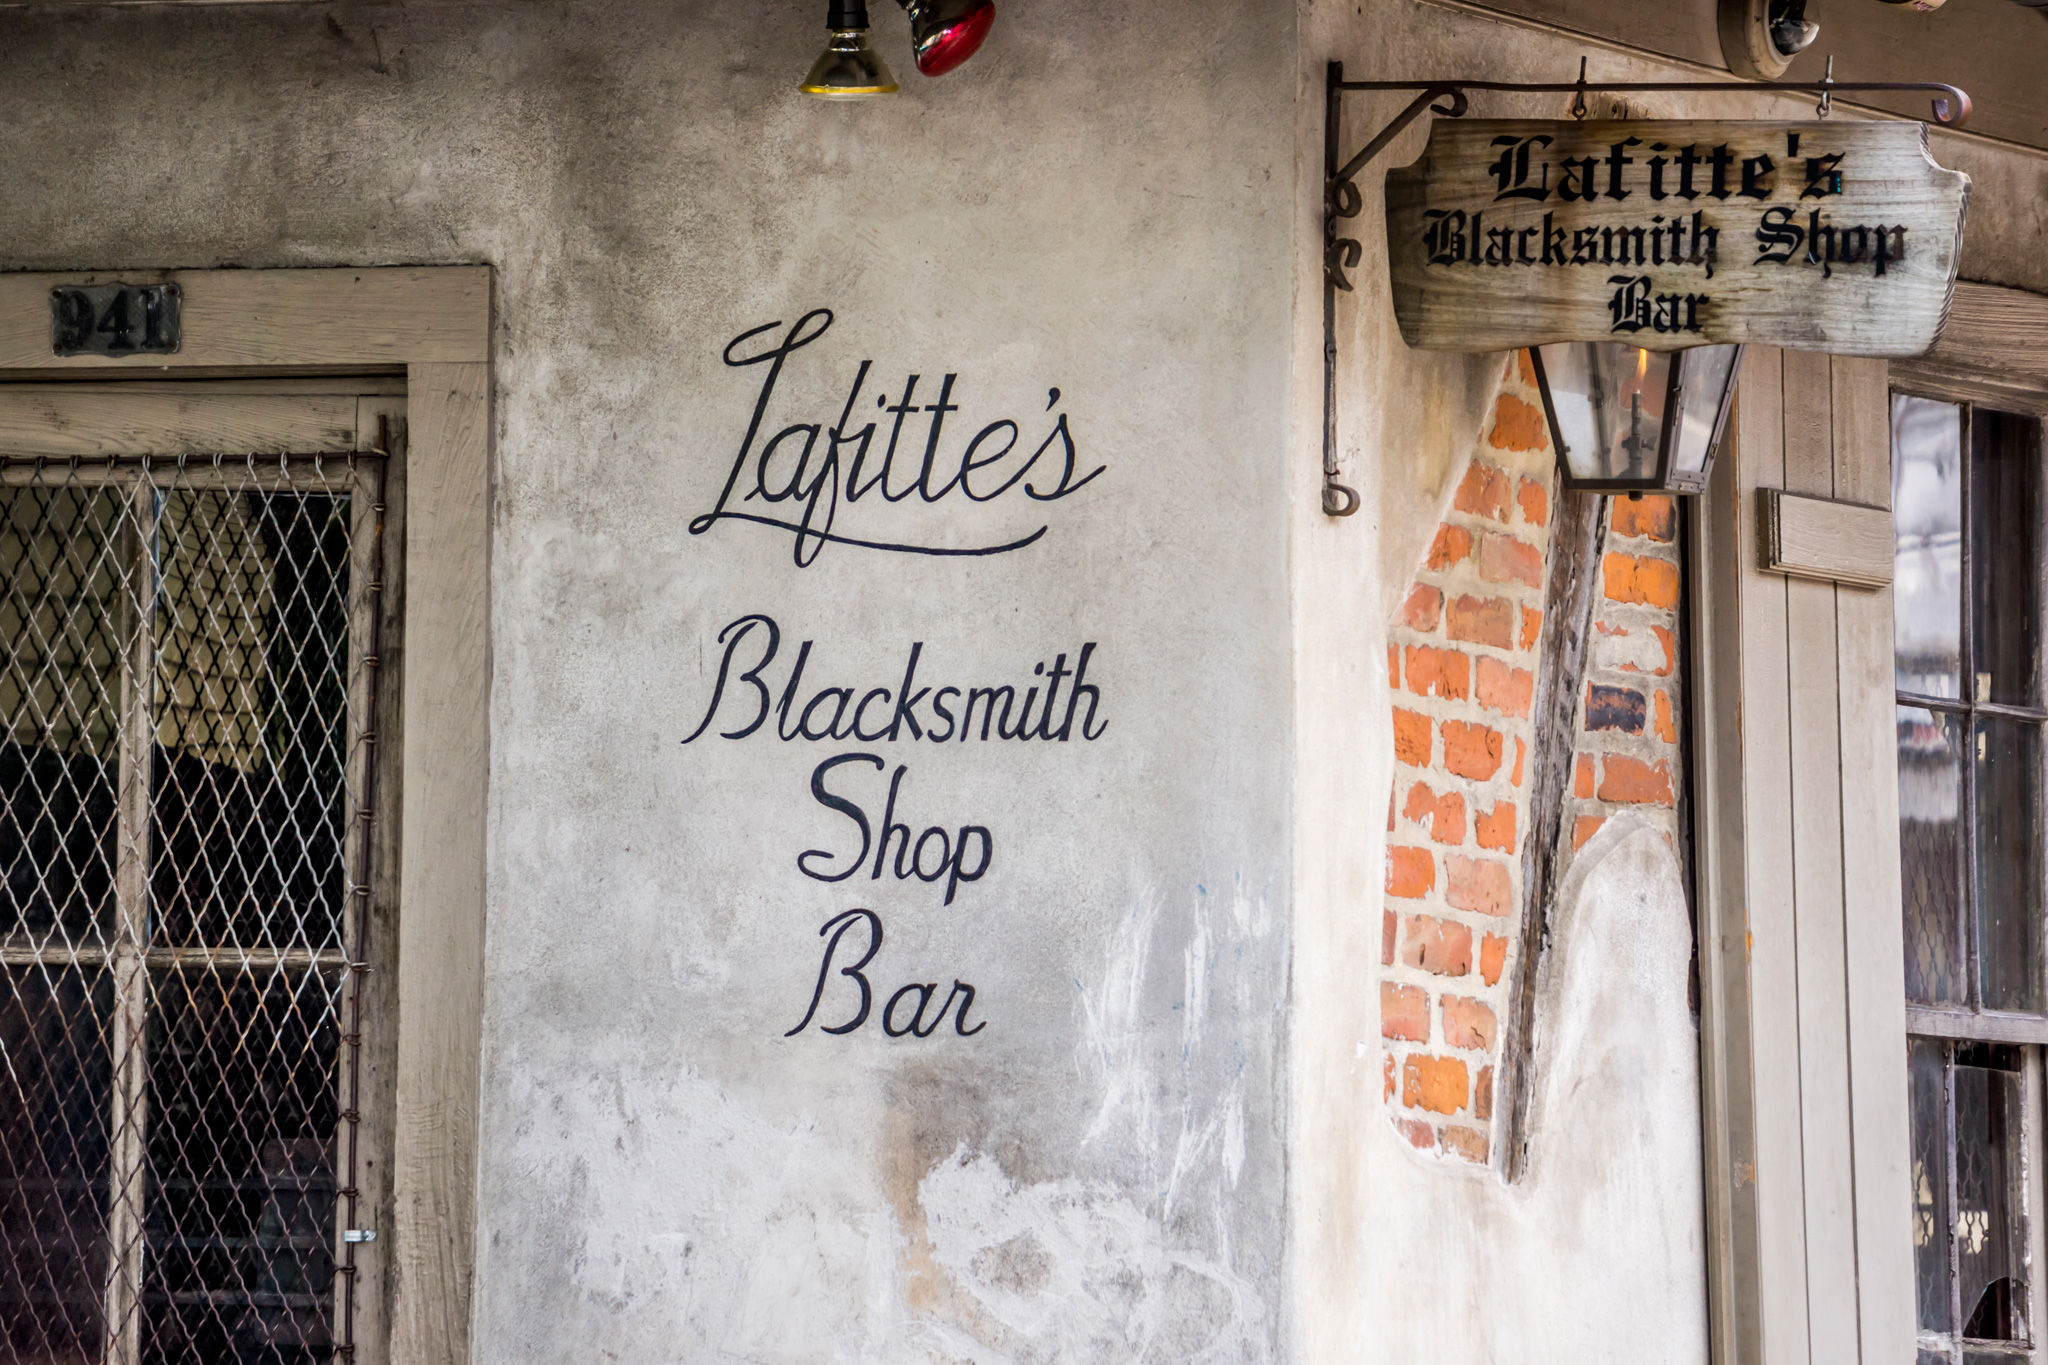 941
Lafitte's
Blacksmith
Shop
Bar
Lafitte's
Blacksmith Shop
Bar